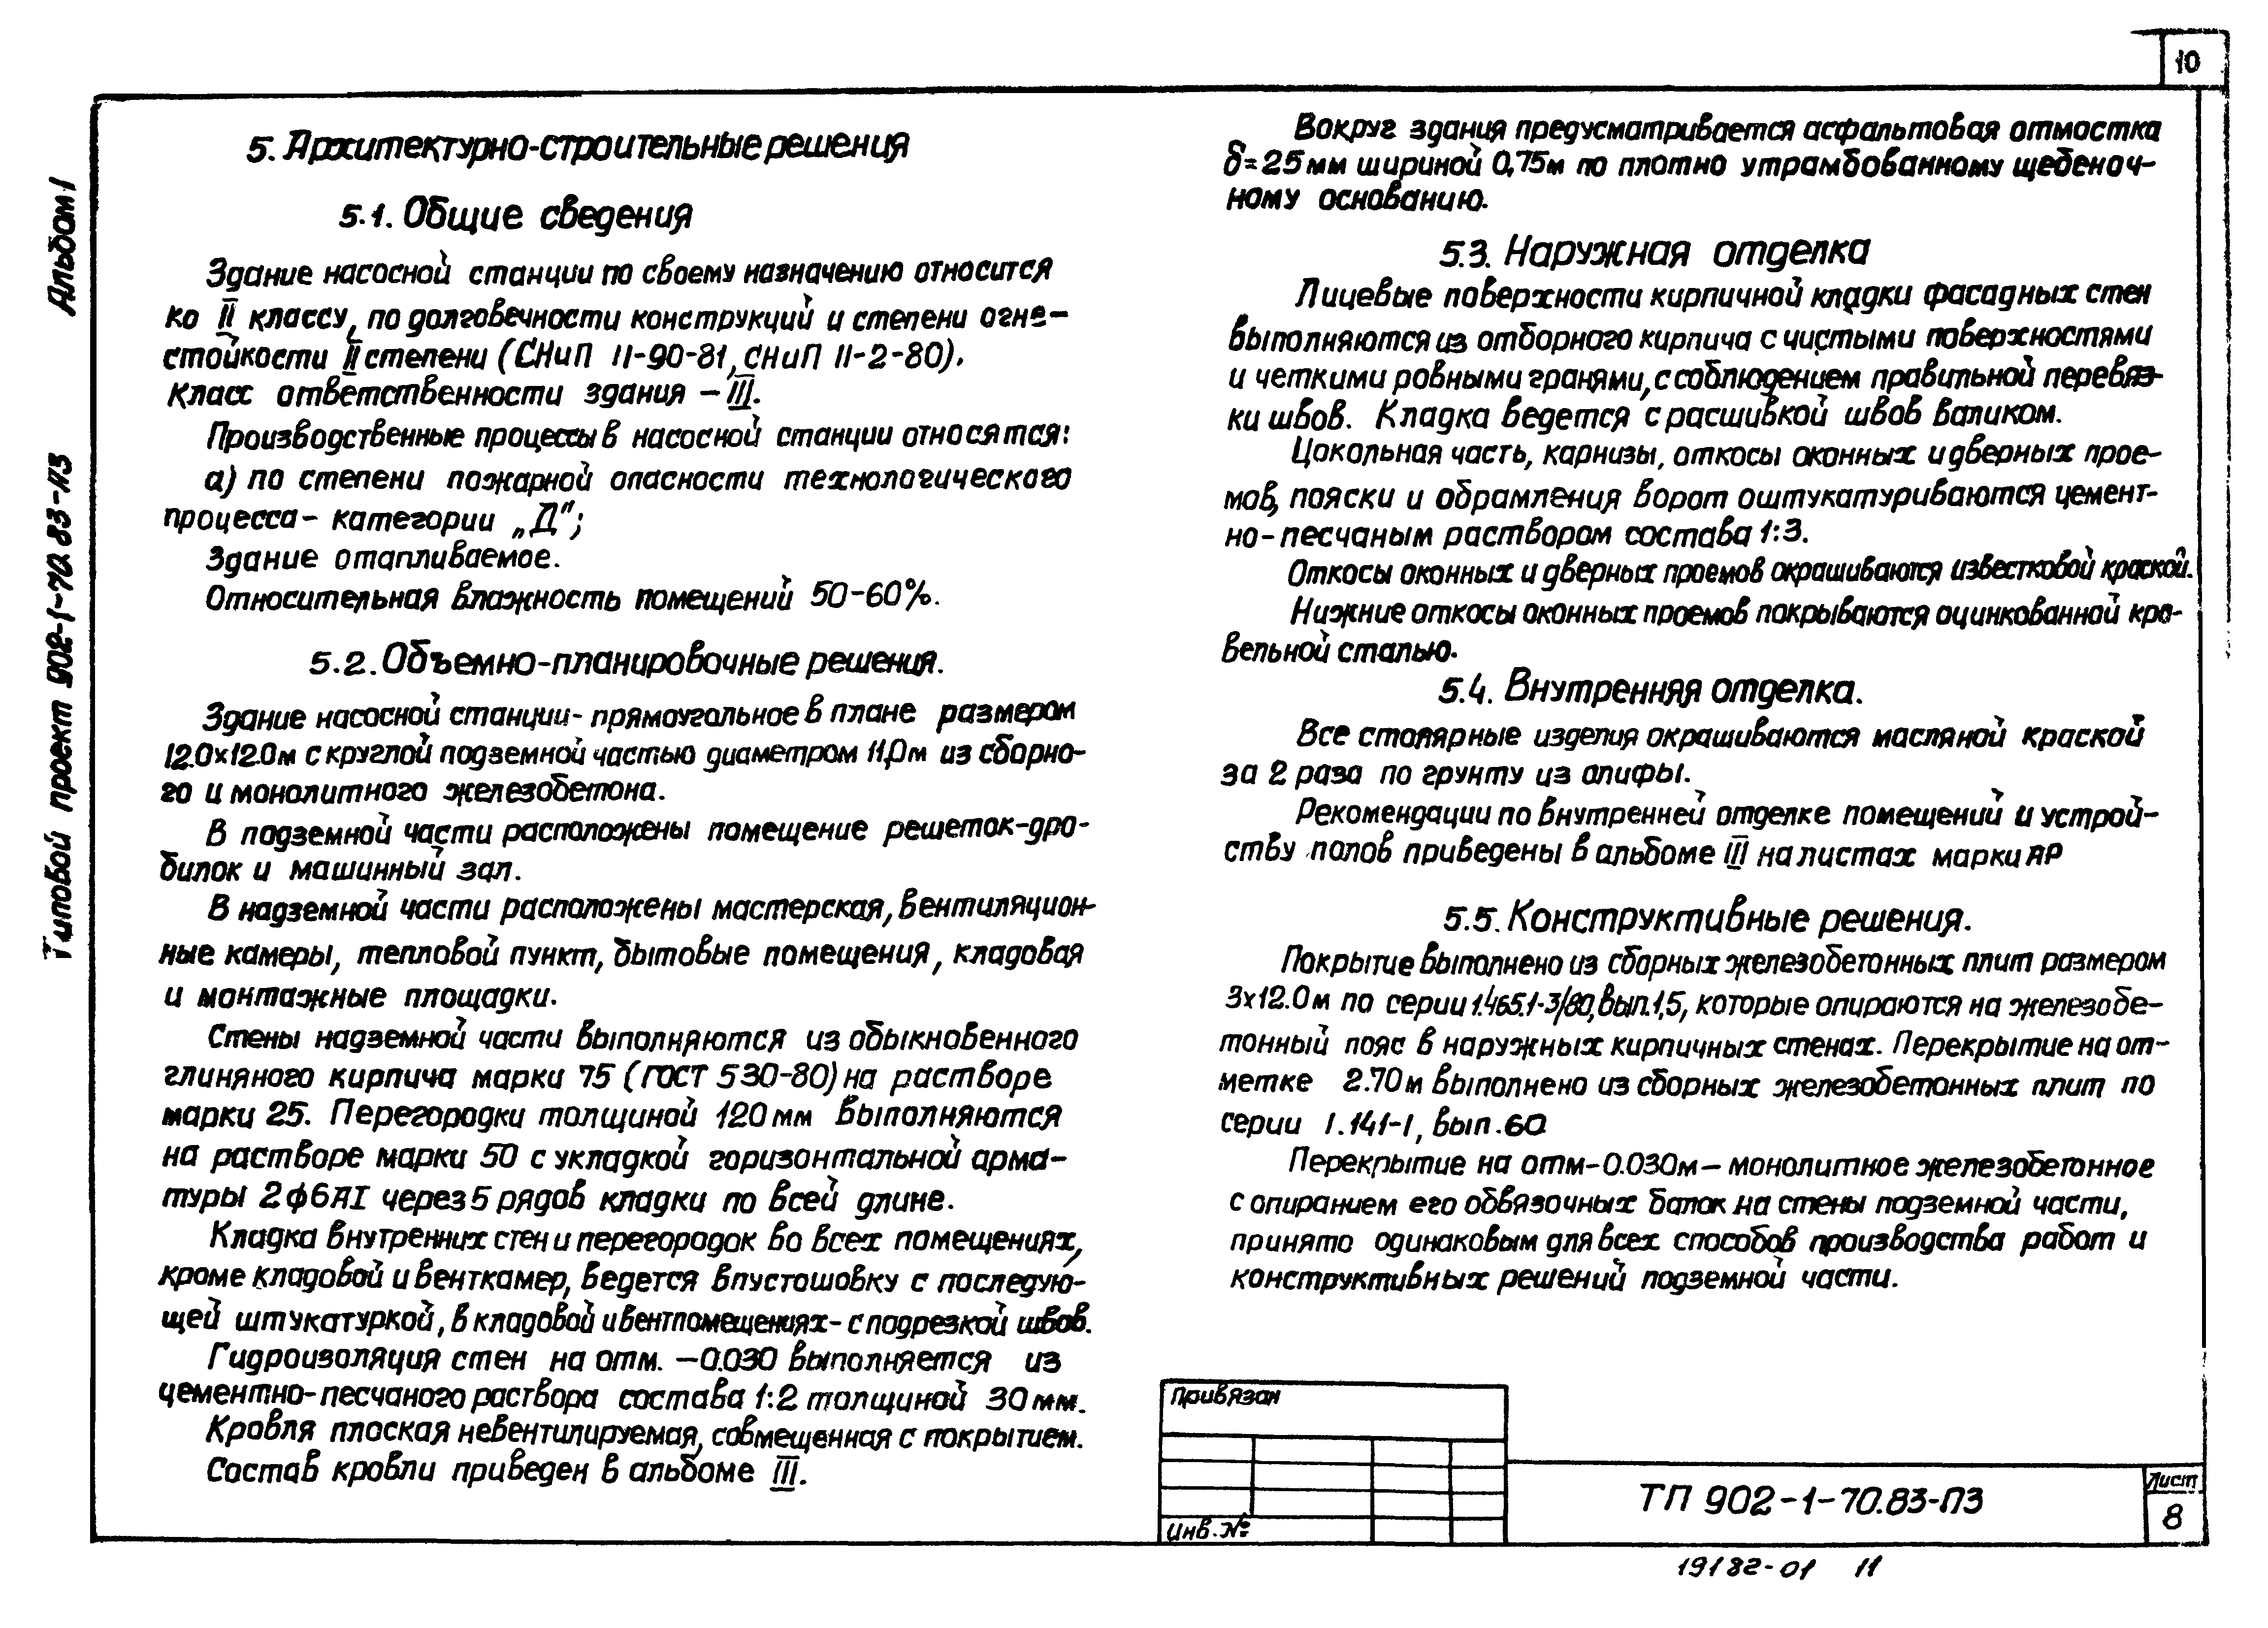 10
Альбом I
Типовой проект 902-1-70.83-ПЗ
5. Архитектурно-строительные решения
5.1. Общие сведения
Здание насосной станции по своему назначению относится
ко II классу, по долговечности конструкций и степени огне-
стойкости II степени (СНиП II-90-81, СНиП II-2-80).
Класс ответственности здания – III.
Производственные процессы в насосной станции относятся:
а) по степени пожарной опасности технологического
процесса - категории „Д";
Здание отапливаемое.
Относительная влажность помещений 50-60%.
5.2. Объемно-планировочные решения.
Здание насосной станции- прямоугольное в плане размером
12.0х12.0м с круглой подземной частью диаметром 11,0м из сборно-
го и монолитного железобетона.
В подземной части расположены помещение решеток-дро-
билок и машинный зал.
В надземной части расположены мастерская, вентиляцион-
ные камеры, тепловой пункт, бытовые помещения, кладовая
и монтажные площадки.
Стены надземной части выполняются из обыкновенного
глиняного кирпича марки 75 (ГОСТ 530-80) на растворе
марки 25. Перегородки толщиной 120мм выполняются
на растворе марки 50 с укладкой горизонтальной арма-
туры 2ф6АI через 5 рядов кладки по всей длине.
Кладка внутренних стен и перегородок во всех помещениях,
кроме кладовой и венткамер, ведется впустошовку с последую-
щей штукатуркой, в кладовой и вентпомещениях - с подрезкой швов.
Гидроизоляция стен на отм. –0.030 выполняется из
цементно-песчаного раствора состава 1:2 толщиной 30мм.
Кровля плоская невентилируемая, совмещенная с покрытием.
Состав кровли приведен в альбоме III.
Вокруг здания предусматривается асфальтовая отмостка
δ=25мм шириной 0,75м по плотно утрамбованному щебеноч-
ному основанию.
5.3. Наружная отделка
Лицевые поверхности кирпичной кладки фасадных стен
выполняются из отборного кирпича с чистыми поверхностями
и четкими ровными гранями, с соблюдением правильной перевяз-
ки швов. Кладка ведется с расшивкой швов валиком.
Цокольная часть, карнизы, откосы оконных и дверных прое-
мов, пояски и обрамления ворот оштукатуриваются цемент-
но-песчаным раствором состава 1:3.
Откосы оконных и дверных проемов окрашиваются известковой краской.
Нижние откосы оконных проемов покрываются оцинкованной кро-
вельной сталью.
5.4. Внутренняя отделка.
Все столярные изделия окрашиваются масляной краской
за 2 раза по грунту из олифы.
Рекомендации по внутренней отделке помещений и устрой-
ству полов приведены в альбоме III на листах марки АР
5.5. Конструктивные решения.
Покрытие выполнено из сборных железобетонных плит размером
3х12.0м по серии 1.465.1-3/80, вып.1,5, которые опираются на железобе-
тонный пояс в наружных кирпичных стенах. Перекрытие на от-
метке 2.70м выполнено из сборных железобетонных плит по
серии 1.141-1, вып.60
Перекрытие на отм-0.030м – монолитное железобетонное
с опиранием его обвязочных балок на стены подземной части,
принято одинаковым для всех способов производства работ и
конструктивных решений подземной части.
Привязан
Инв.№
ТП 902-1-70.83-ПЗ
Лист
8
19182-01 11